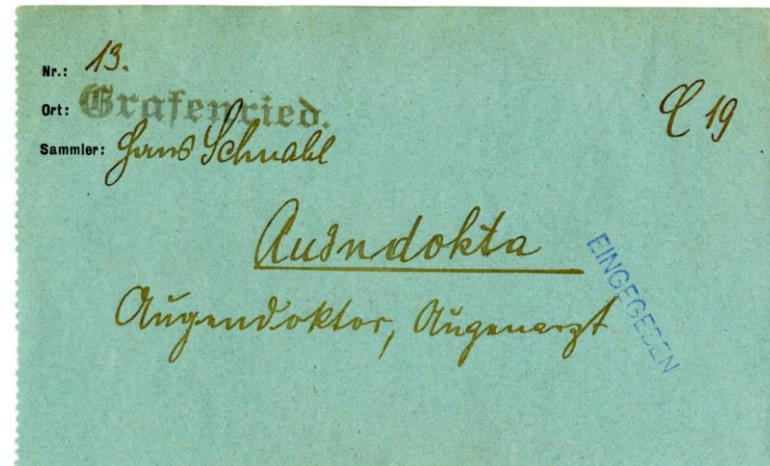 Nr.: 13.
Ort: Grafenried.
Sammler: Hans Schnabl
C 19
Ausndokta
EINGEGEBEN
Augendoktor, Augenarzt